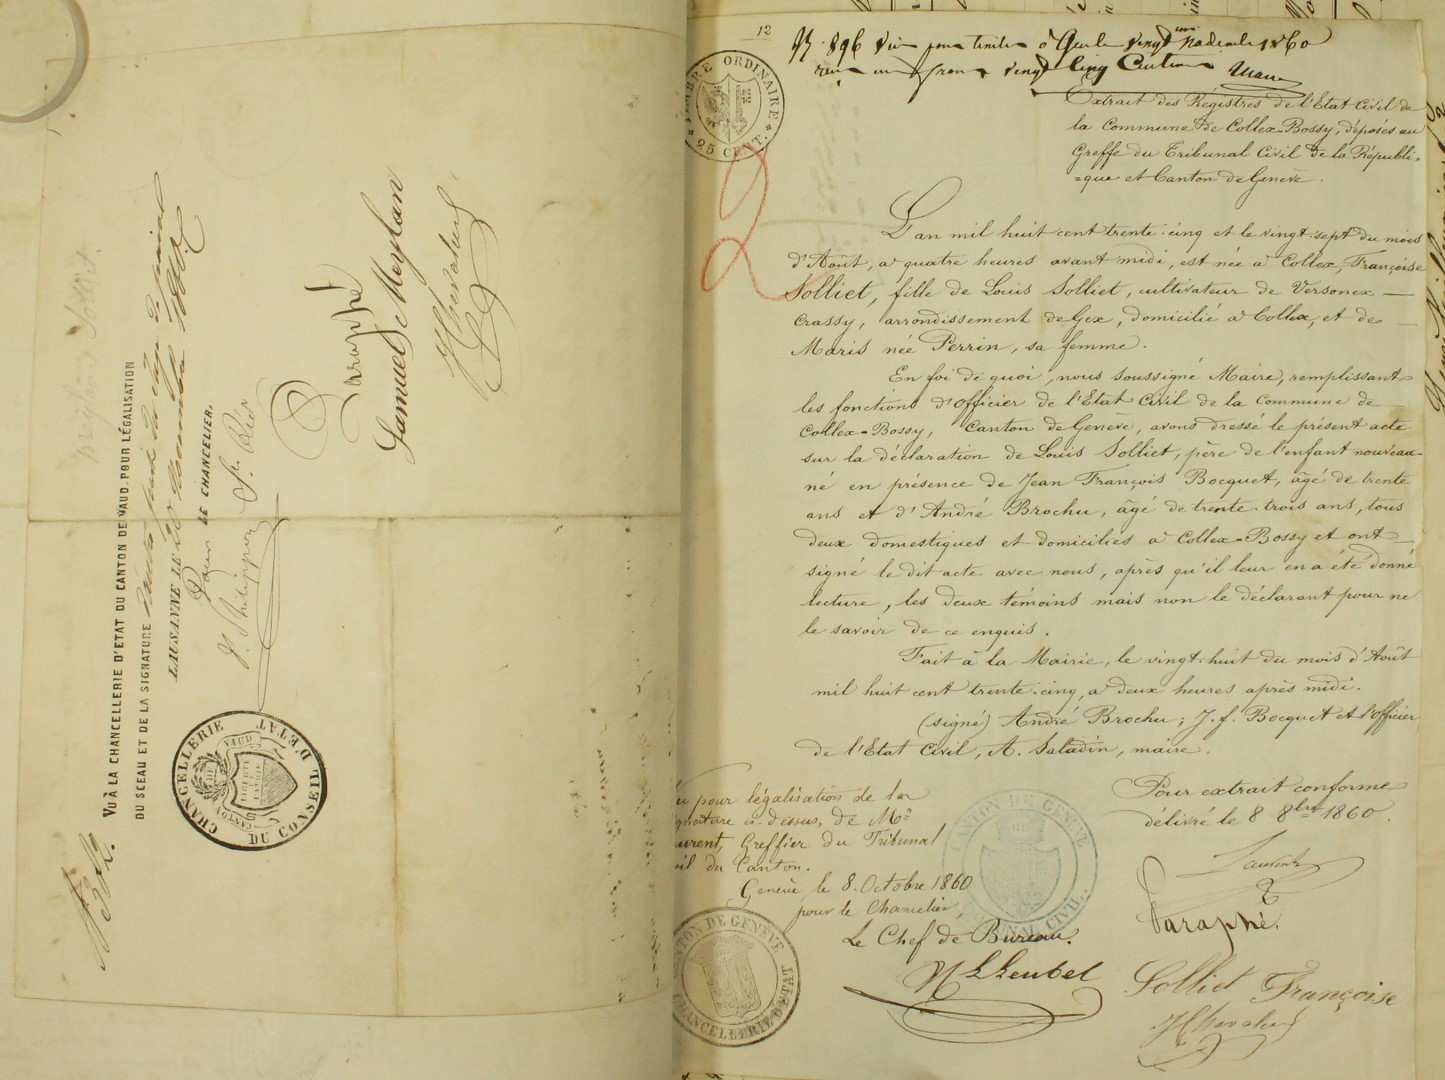 VU À LA CHANCELLERIE D'ETAT DU CANTON DE VAUD, POUR LÉGALISATION
DU SCEAU ET DE LA SIGNATURE
LAUSANNE LE
Pour LE CHANCELIER.
CHANCELLERIE DU CONSEIL D'ETAT
VAUD
LIBERTÉ ET PATRIE
CANTON
Paraphé
Samuel Meylan
12
TIMBRE ORDINAIRE
25 CENT.
Extrait des Régistres de l'Etat Civil de
la Commune de Collex-Bossy, déposés au
Greffe du Tribunal Civil de la Républi-
=que et Canton de Genève.
L'an mil huit cent trente-cinq et le vingt-sept du mois
d'Août, à quatre heures avant midi, est née à Collex, Françoise
Solliet, fille de Louis Solliet, cultivateur de Versonex
Crassy, arrondissement de Gex, domicilié à Collex, et de
Marie née Perrin, sa femme.
En foi de quoi, nous soussigné Maire, remplissant
les fonctions d'Officier de l'Etat Civil de la Commune de
Collex-Bossy, Canton de Genève, avons dressé le présent acte
sur la déclaration de Louis Solliet, père de l'enfant nouveau-
né en présence de Jean François Bocquet, âgé de trente
ans et d'André Brochu, âgé de trente-trois ans, tous
deux domestiques et domiciliés à Collex-Bossy et ont
signé le dit acte avec nous, après qu'il leur en a été donné
lecture, les deux témoins mais non le déclarant pour ne
le savoir de ce enquis.
Fait à la Mairie, le vingt-huit du mois d'Août
mil huit cent trente-cinq, à deux heures après midi.
(signé) André Brochu; J. f. Bocquet et l'Officier
de l'Etat Civil, A. Saladin, maire.
Pour extrait conforme
délivré le 8 8bre 1860.
Laurent
Paraphé.
Solliet Françoise
pour légalisation de la
ci-dessus, de Mr
Greffier du Tribunal
du Canton.
Genève le 8. Octobre 1860
pour le Chancelier,
Le Chef de Bureau.
CANTON DE GENEVE
TRIBUNAL CIVIL
CANTON DE GENEVE
CHANCELLERIE D'ETAT